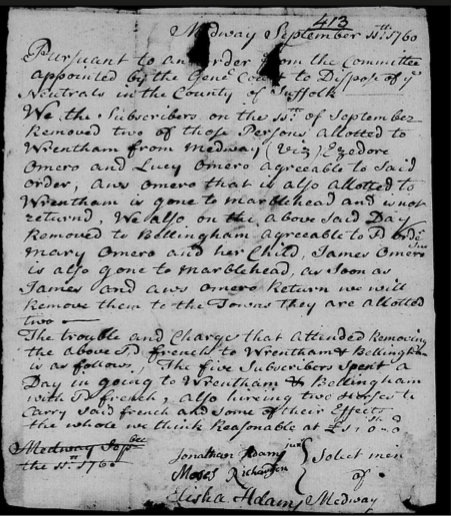 413
Medway September 11th 1760
Pursuant to an order from the Committee
appointed by the Genel Court to Dispose of ye
Neutrals in the County of Suffolk
We the Subscribers on the 11th of September
Removed two of those Persons allotted to
Wrentham from Medway (viz) Ezedore
Omero and Lucy Omero agreeable to said
order, aws omero that is also allotted to
Wrentham is gone to marblehead and is not
returnd, We also on the above said Day
Removed to Bellingham agreeable to sd orde
Mary Omero and her Child, James Omero
is also gone to Marblehead, as soon as
James and aws omero Return we will
Remove them to the Towns They are allotted
two
The trouble and Charge that attended Removing
the above sd french to Wrentham & Bellingham
is as follows, The five Subscribers spent a
Day in going to Wrentham & Bellingham
with sd french, also hireing two Horses to
Carry said french and some of their Effects
the whole we think Reasonable at £1:0:0
Medway Sepber
the 11th 1760
Jonathan Adams junr
Moses Richardson
Elisha Adams
Select men
of
Medway